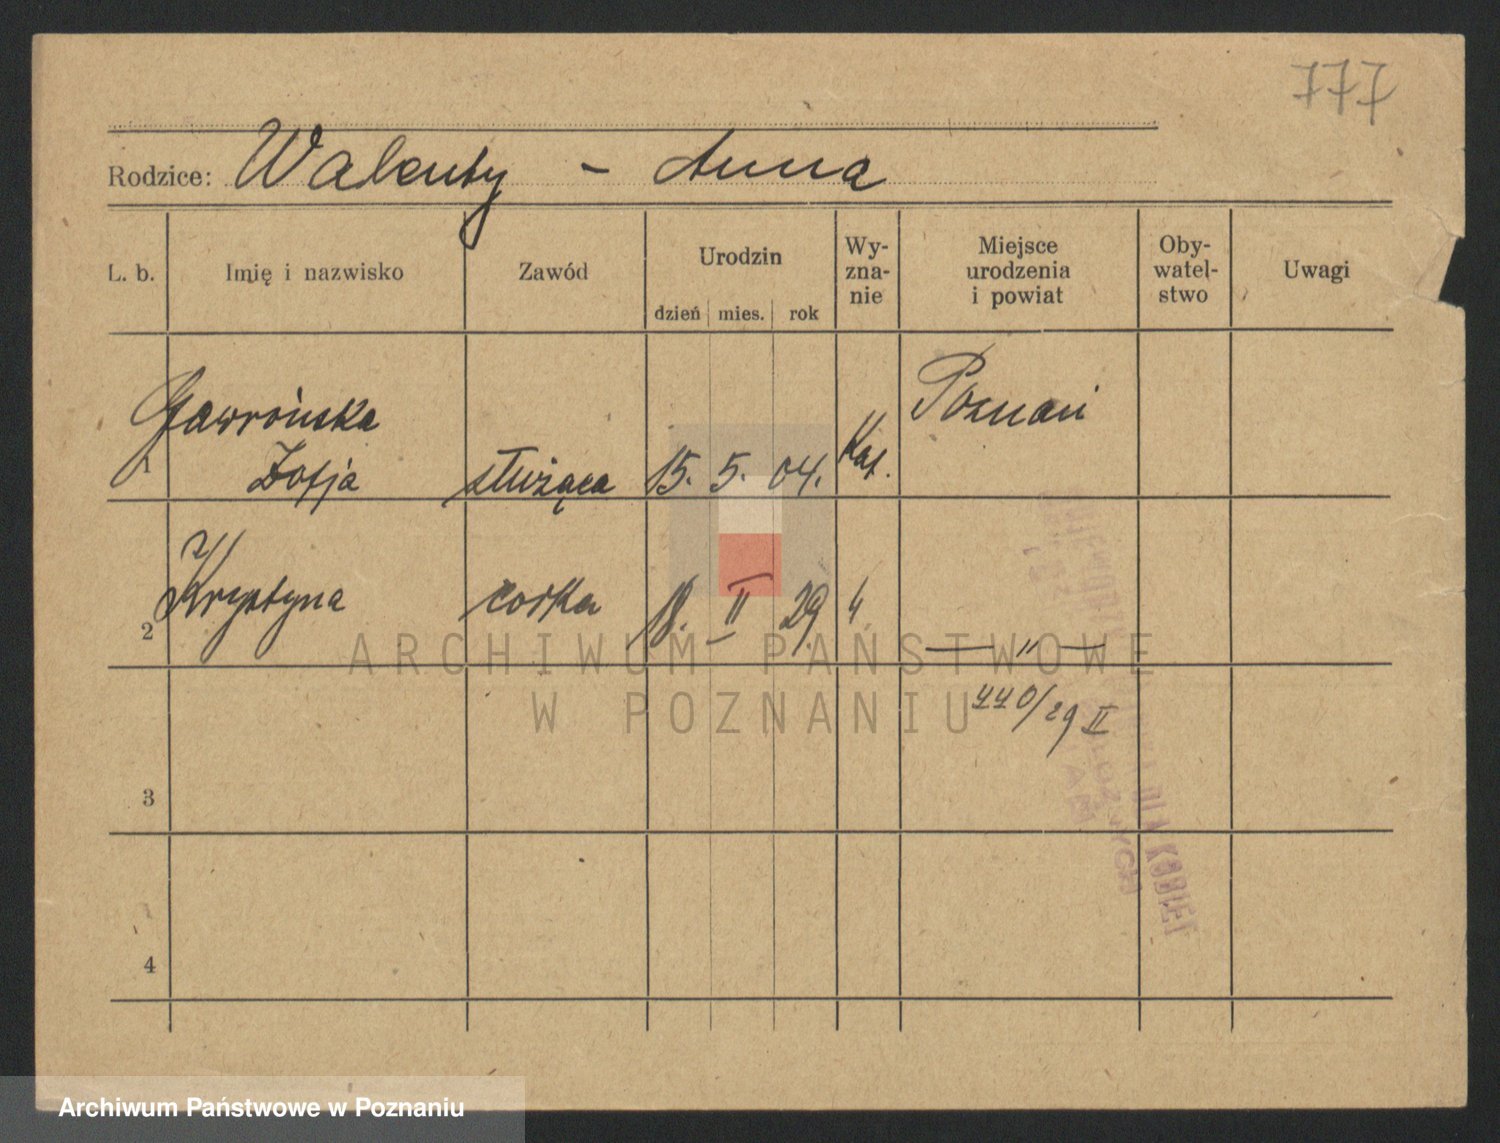 777
Rodzice: Walenty - Anna
L. b. Imię i nazwisko Zawód Urodzin dzień mies. rok Wy-zna-nie Miejsce urodzenia i powiat Oby-watel-stwo Uwagi
1 Gawrońska Zofja służąca 15. 5. 04. Kat. Poznań
2 Krystyna córka 18. II 29 " — " —
440/29 II
3
4
DLA KOBIET
ARCHIWUM PAŃSTWOWE
W POZNANIU
Archiwum Państwowe w Poznaniu